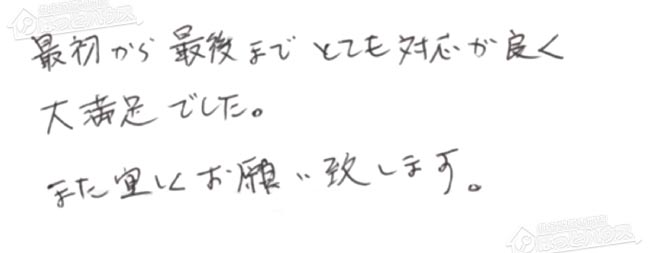 最初から最後までとても対応が良く
大満足でした。
また宜しくお願い致します。